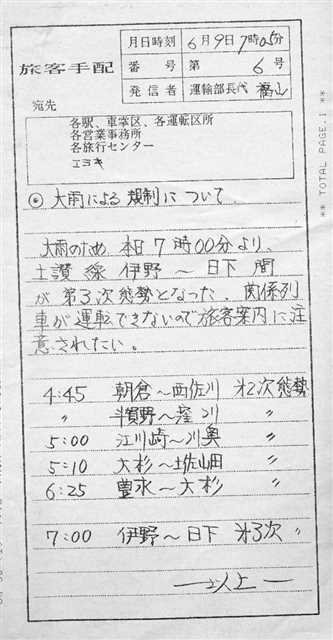 月日時刻 6月9日7時05分
旅客手配
番号 第 6号
発信者 運輸部長代 福山
宛先
各駅、車掌区、各運転区所
各営業事務所
各旅行センター
エヨキ
◎ 大雨による規制について
大雨のため 本日7時00分より、
土讃線 伊野〜日下 間
が 第3次態勢となった。関係列
車が運転できないので旅客案内に注
意されたい。
4:45 朝倉〜西佐川 第2次態勢
〃 斗賀野〜窪川 〃
5:00 江川崎〜川奥 〃
5:10 大杉〜土佐山田 〃
6:25 豊永〜大杉 〃
7:00 伊野〜日下 第3次 〃
—以上—
** TOTAL PAGE.1 **